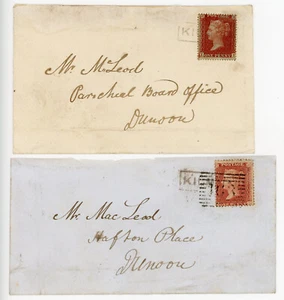 KI
ONE PENNY
Mr. McLeod
Parochial Board Office
Dunoon
KI
POSTAGE
Mr. Mac Lead
Hafton Place
Dunoon